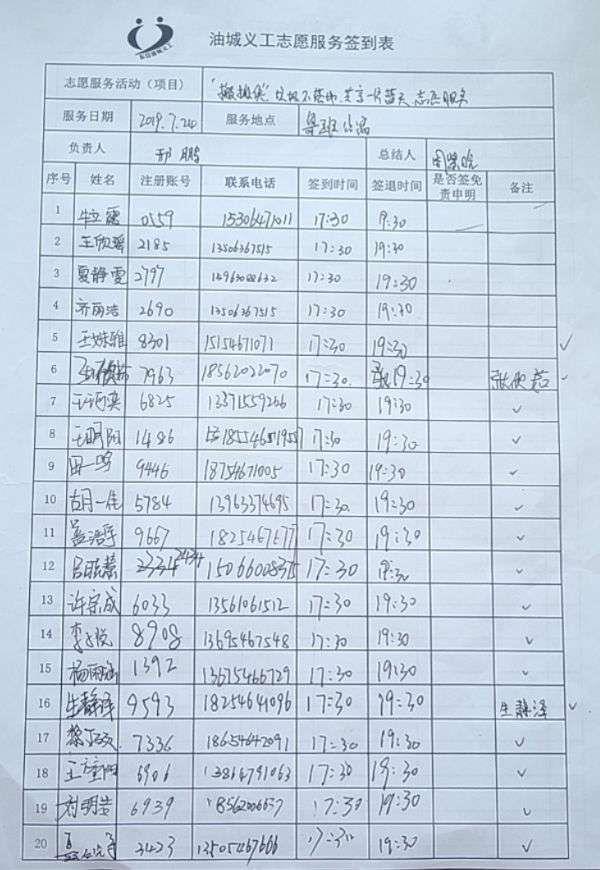 油城义工志愿服务签到表
志愿服务活动（项目） 垃圾不落地 共享一片蓝天 志愿服务
服务日期 2019.7.24 服务地点
负责人 邢鹏 总结人
序号 姓名 注册账号 联系电话 签到时间 签退时间 是否签免责申明 备注
1 0559 15306471011 17:30 19:30
2 王欣馨 2185 13506367515 17:30 19:30
3 夏静雯 2797 17:30 19:30
4 齐雨洁 2690 13506367515 17:30 19:30
5 王姝雅 8301 15154671071 17:30 19:30 ✓
6 7963 18562022070 17:30 19:30 ✓
7 6825 13371559266 17:30 19:30 ✓
8 王明阳 1486 17:30 19:30 ✓
9 田一鸣 9446 18754671005 17:30 19:30 ✓
10 胡一佳 5784 13963374695 17:30 19:30 ✓
11 孟浩宇 9667 1825467677 17:30 19:30 ✓
12 2434 15066008375 17:30 19:30 ✓
13 许宗成 6033 13561061512 17:30 19:30 ✓
14 李子悦 8908 13695467548 17:30 19:30 ✓
15 杨雨涵 1392 13675466729 17:30 19:30 ✓
16 生静泽 9593 18254641096 17:30 19:30 生静泽 ✓
17 7336 18654642091 17:30 19:30 ✓
18 6906 13864791063 17:30 19:30 ✓
19 刘明昊 6939 17:30 19:30 ✓
20 3423 13505467666 17:30 19:30 ✓